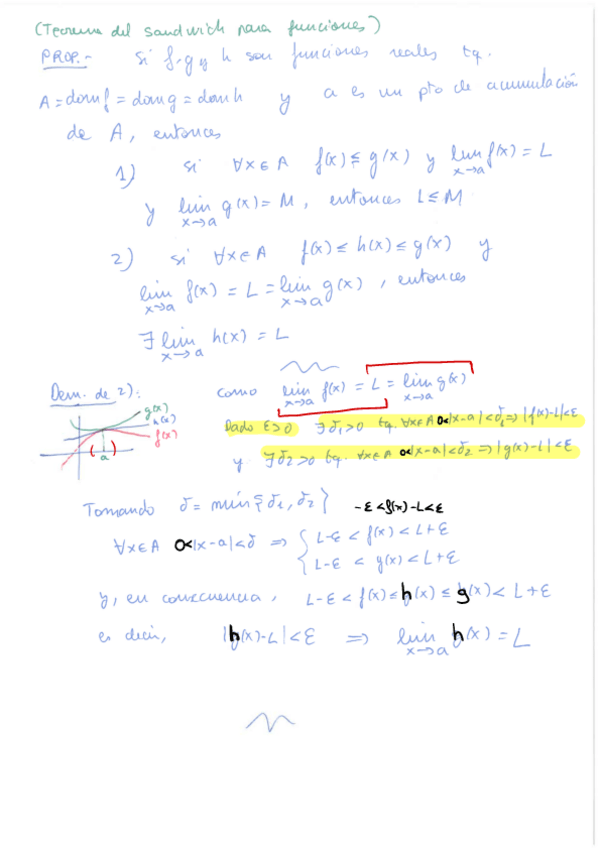 (Teorema del sandwich para funciones)
PROP.- Si f, g y h son funciones reales tq.
A = dom f = dom g = dom h y a es un pto de acumulación
de A, entonces
1) si ∀x∈A f(x) ≤ g(x) y lim x→a f(x) = L
y lim x→a g(x) = M, entonces L ≤ M
2) si ∀x∈A f(x) ≤ h(x) ≤ g(x) y
lim x→a f(x) = L = lim x→a g(x), entonces
∃ lim x→a h(x) = L
Dem. de 2): como lim x→a f(x) = L = lim x→a g(x)
g(x)
h(x)
f(x)
a
Dado ε>0 ∃δ1>0 tq. ∀x∈A 0<|x-a|<δ1 ⇒ |f(x)-L|<ε
y ∃δ2>0 tq. ∀x∈A 0<|x-a|<δ2 ⇒ |g(x)-L|<ε
Tomando δ = mín{δ1, δ2} -ε<f(x)-L<ε
∀x∈A 0<|x-a|<δ ⇒ { L-ε < f(x) < L+ε
L-ε < g(x) < L+ε
y, en consecuencia, L-ε < f(x) ≤ h(x) ≤ g(x) < L+ε
es decir, |h(x)-L|<ε ⇒ lim x→a h(x) = L